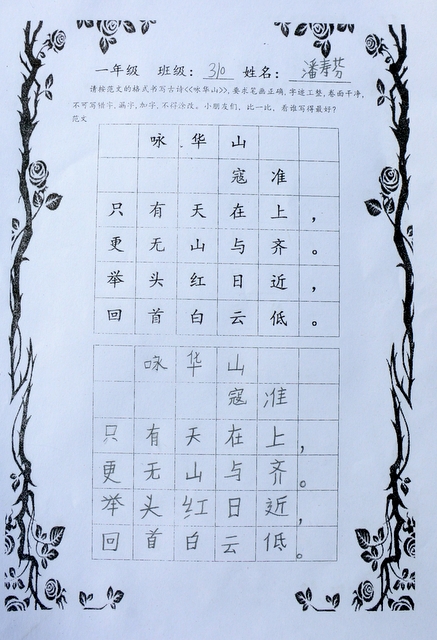 一年级 班级：310 姓名：潘寿芬
请按范文的格式书写古诗<<咏华山>>,要求笔画正确,字迹工整,卷面干净,
不可写错字,漏字,加字,不得涂改。小朋友们，比一比，看谁写得最好?
范文
咏华山
寇准
只有天在上，
更无山与齐。
举头红日近，
回首白云低。
咏华山
寇准
只有天在上，
更无山与齐。
举头红日近，
回首白云低。